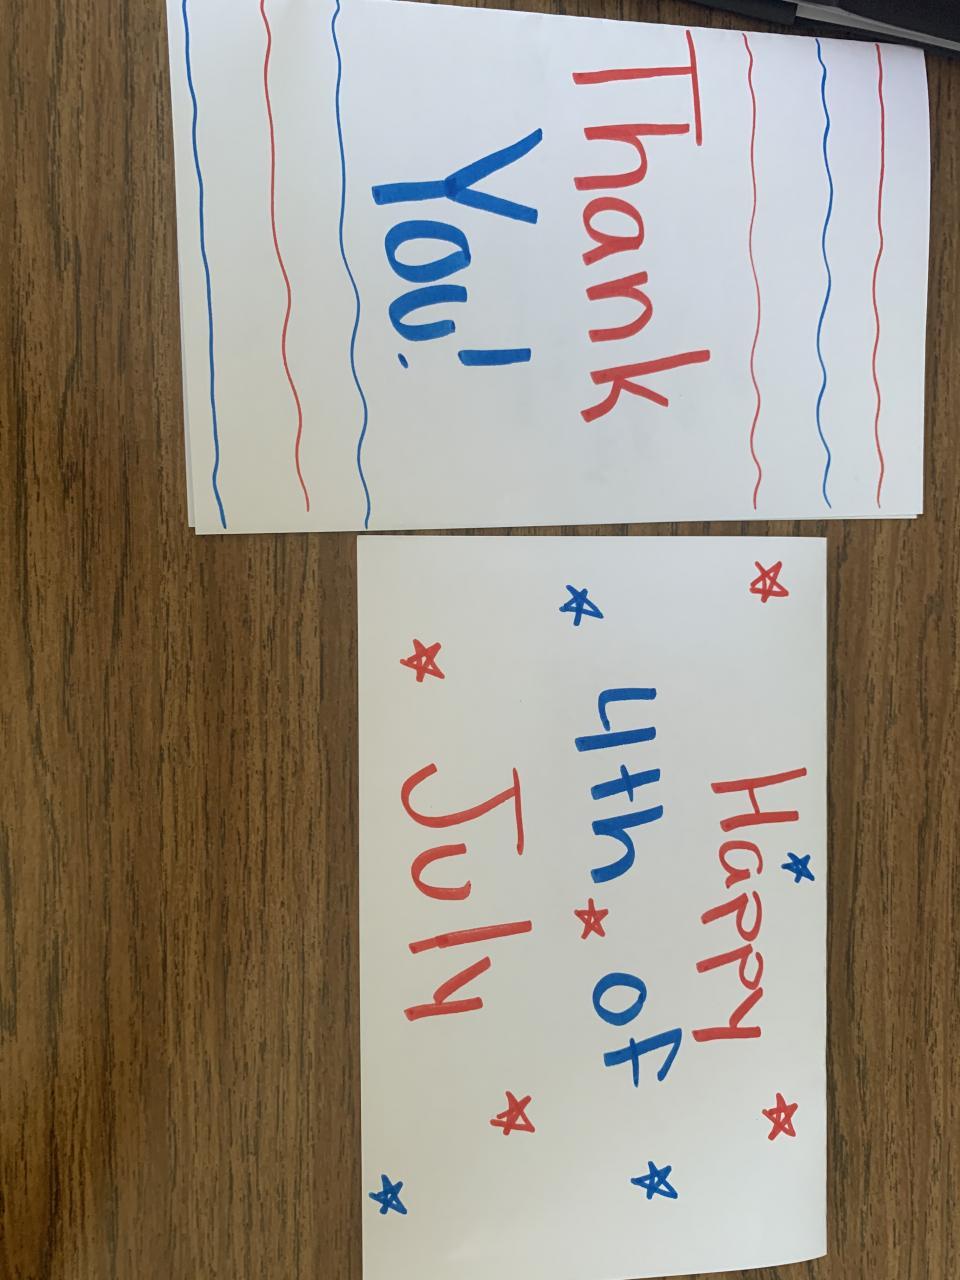 Thank
You!
Happy
4th of
July